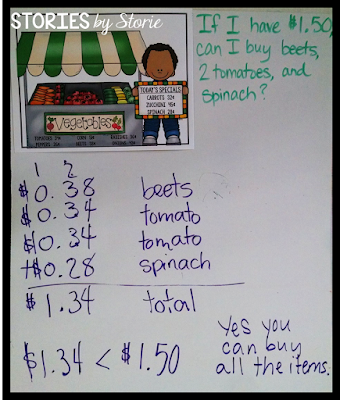 STORIES by Storie
If I have $1.50,
can I buy beets,
2 tomatoes, and
spinach?
TODAY'S SPECIALS
CARROTS
ZUCCHINI
SPINACH
Vegetables
1 2
$0.38 beets
$0.34 tomato
$0.34 tomato
+$0.28 spinach
$1.34 total
$1.34 < $1.50
Yes you
can buy
all the items.